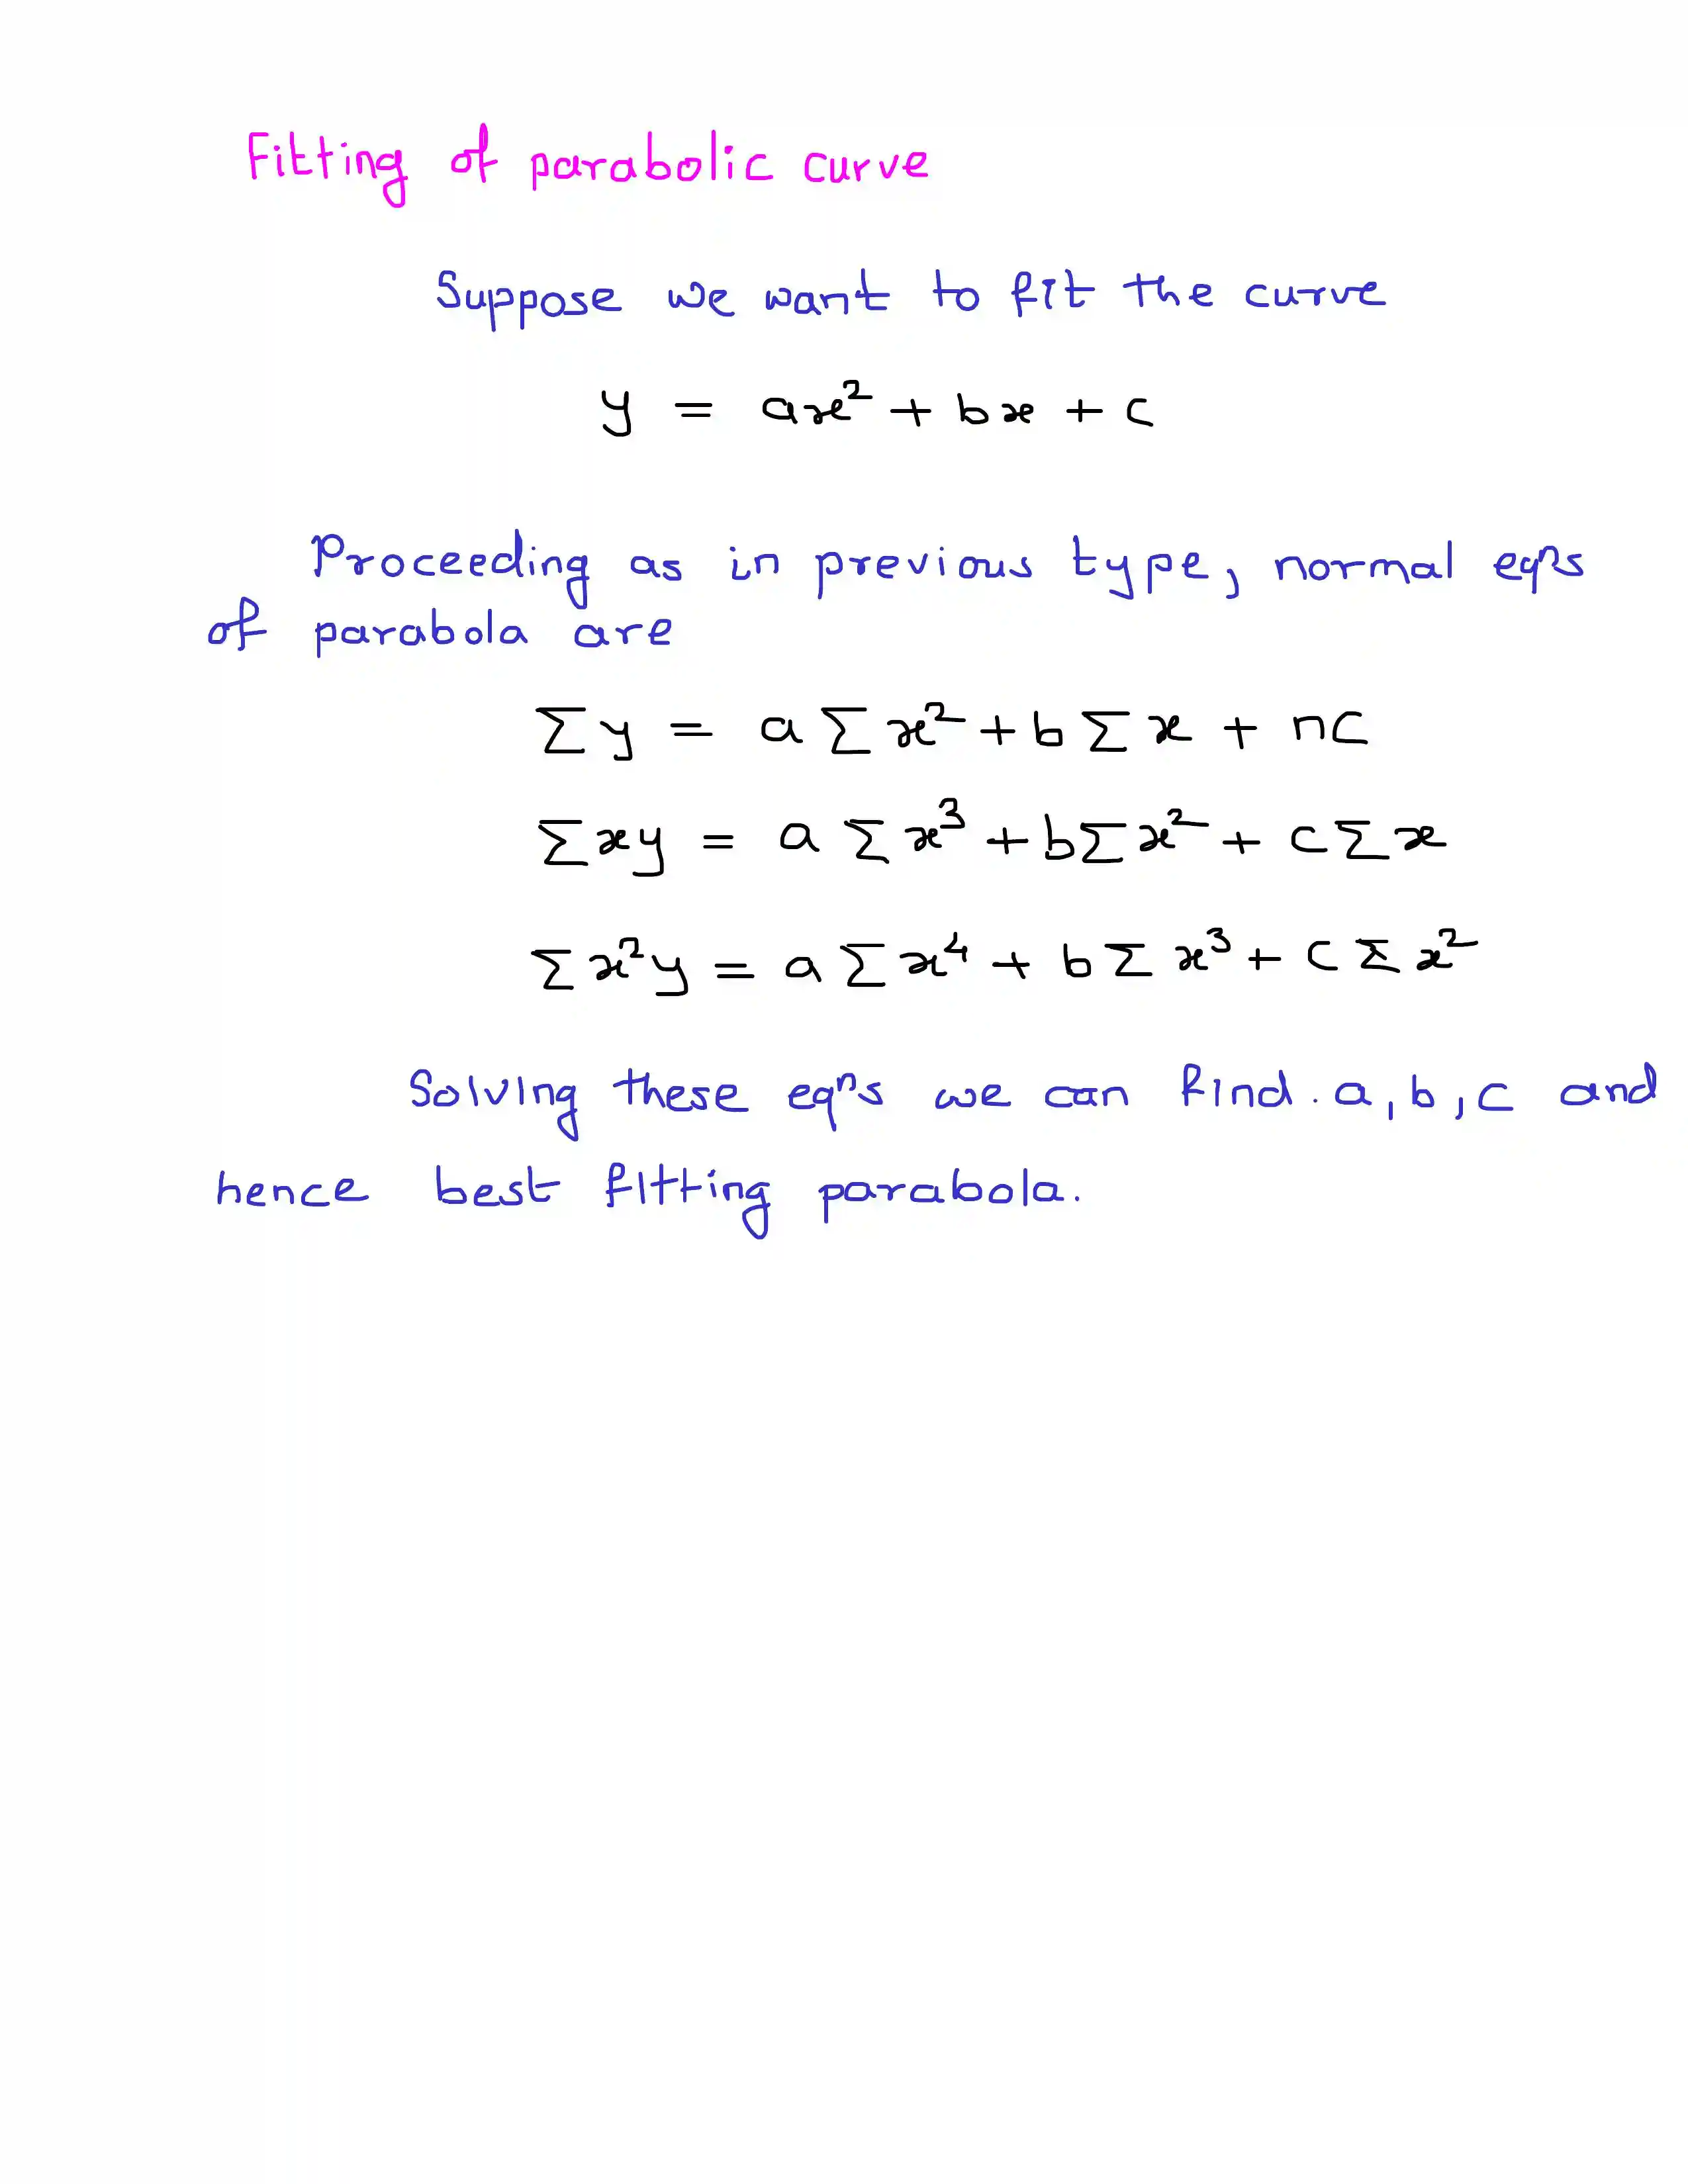 Fitting of parabolic curve
Suppose we want to fit the curve
y = ax² + bx + c
Proceeding as in previous type, normal eqⁿs
of parabola are
Σy = aΣx² + bΣx + nc
Σxy = aΣx³ + bΣx² + cΣx
Σx²y = aΣx⁴ + bΣx³ + cΣx²
Solving these eqⁿs we can find. a, b, c and
hence best fitting parabola.